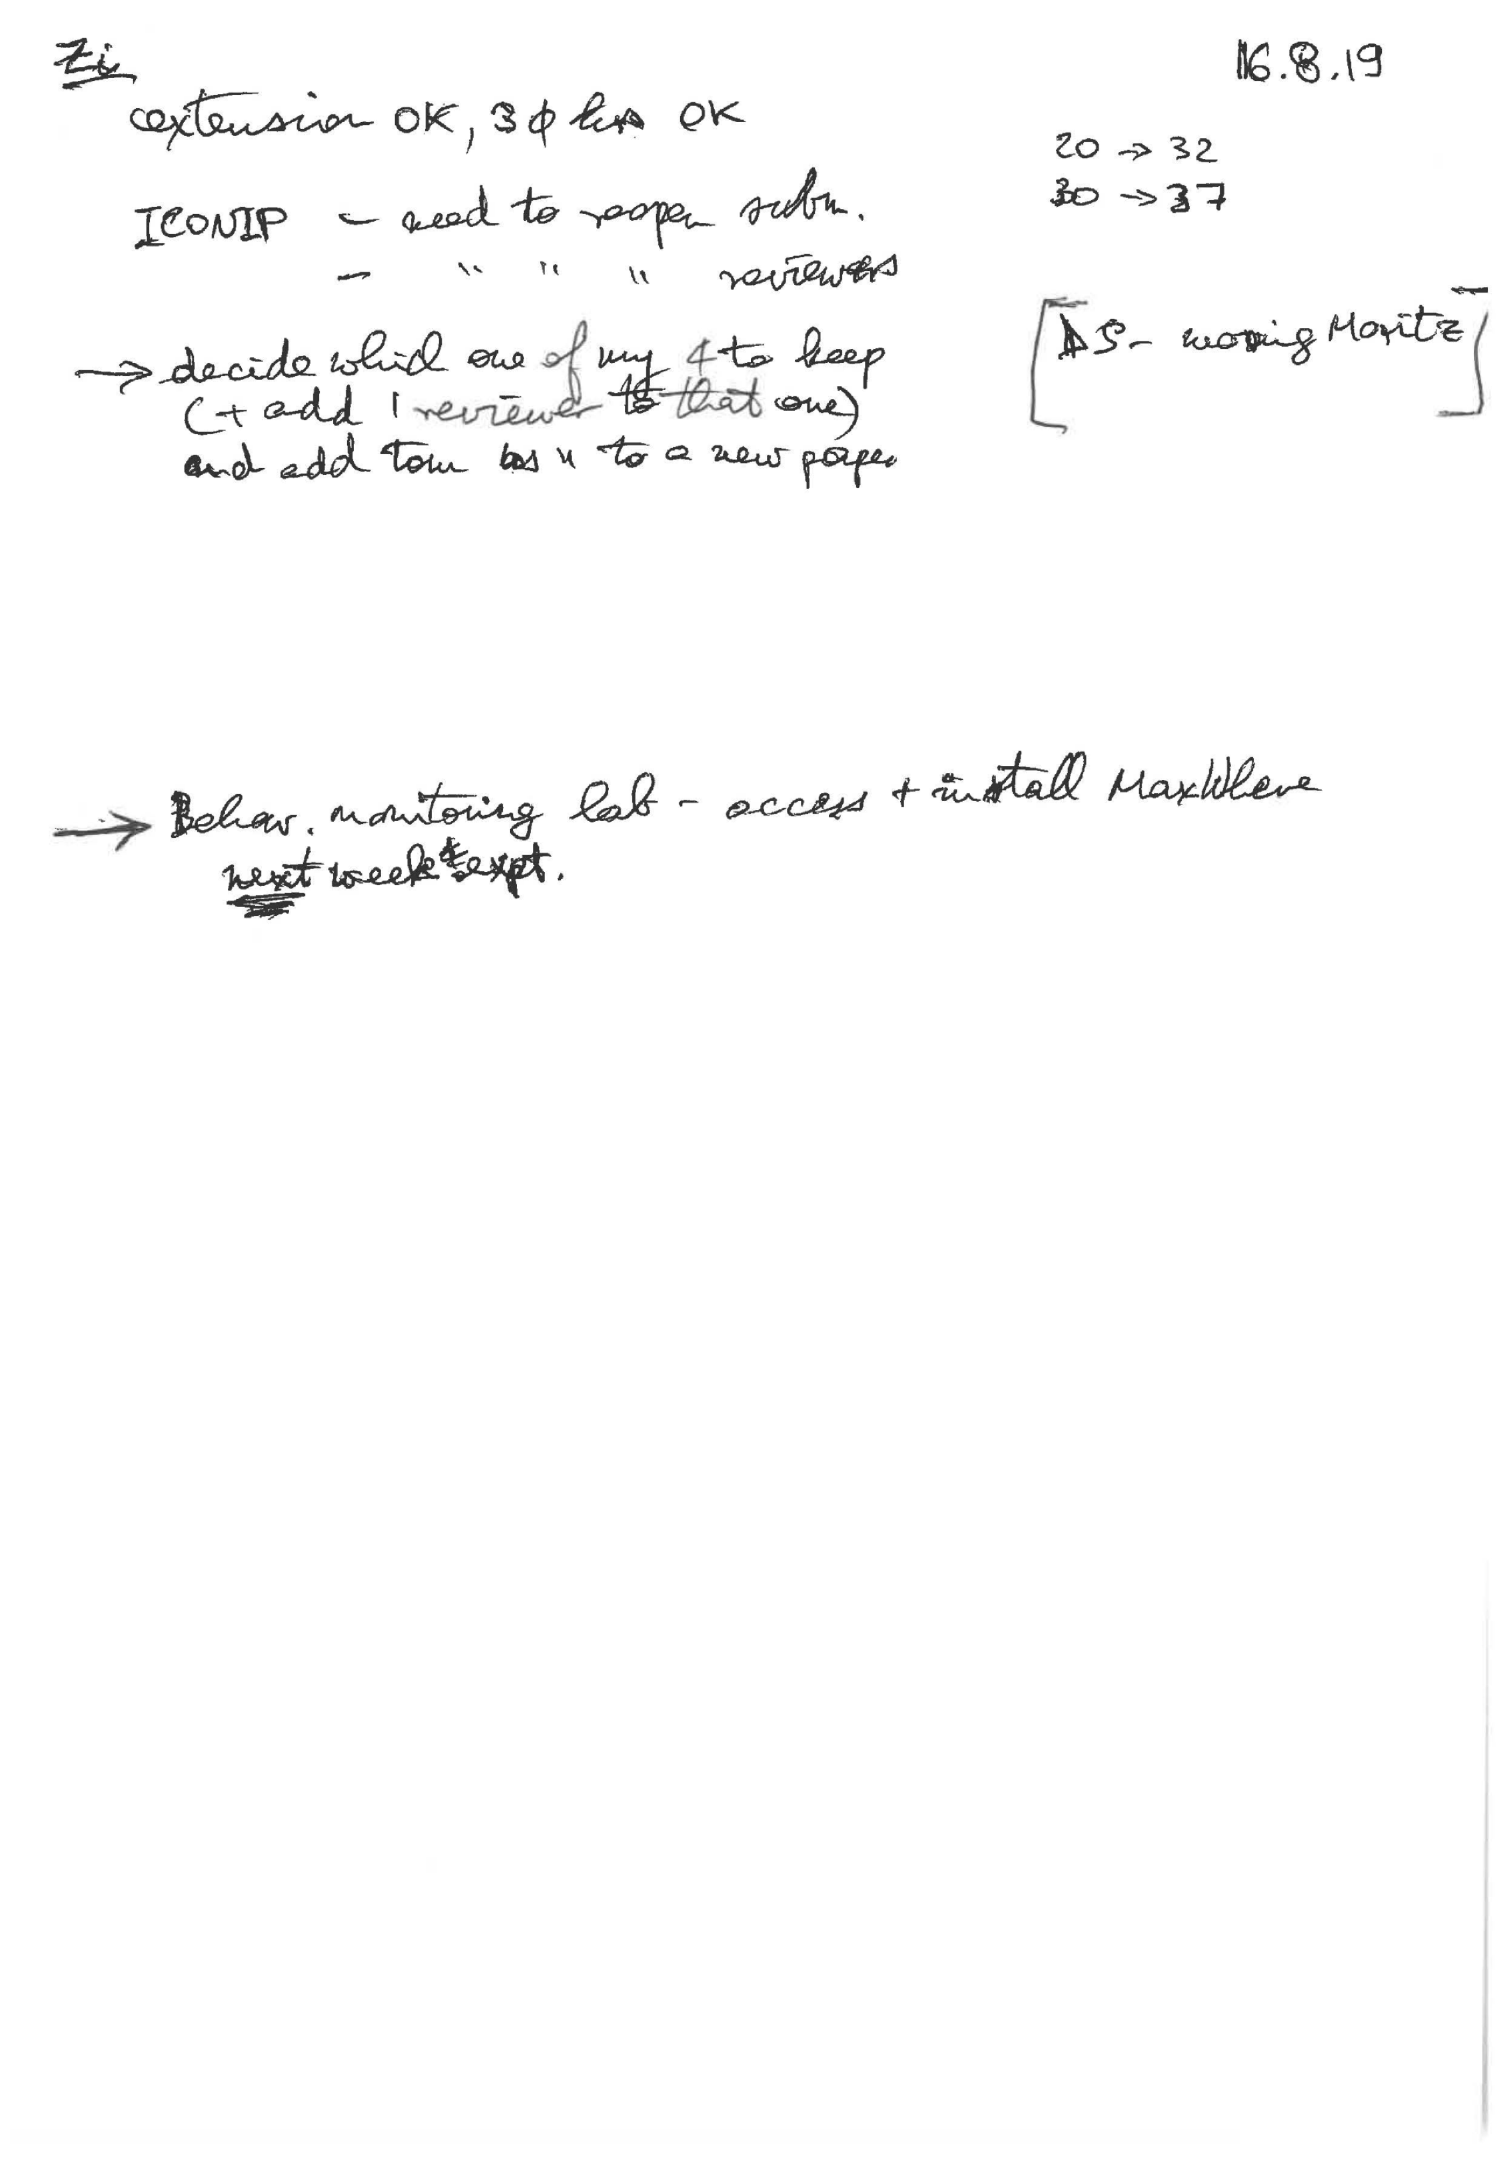 Zi
16.8.19
extension OK, 30 hrs OK
20 → 32
30 → 37
ICONIP - need to reopen subm.
- " " " reviewers
[DS - moving Moritz]
→ decide which one of my 4 to keep
(+ add 1 reviewer to that one)
and add Tom as " to a new paper
→ Behav. monitoring lab - access + install MaxWhere
next week expt.